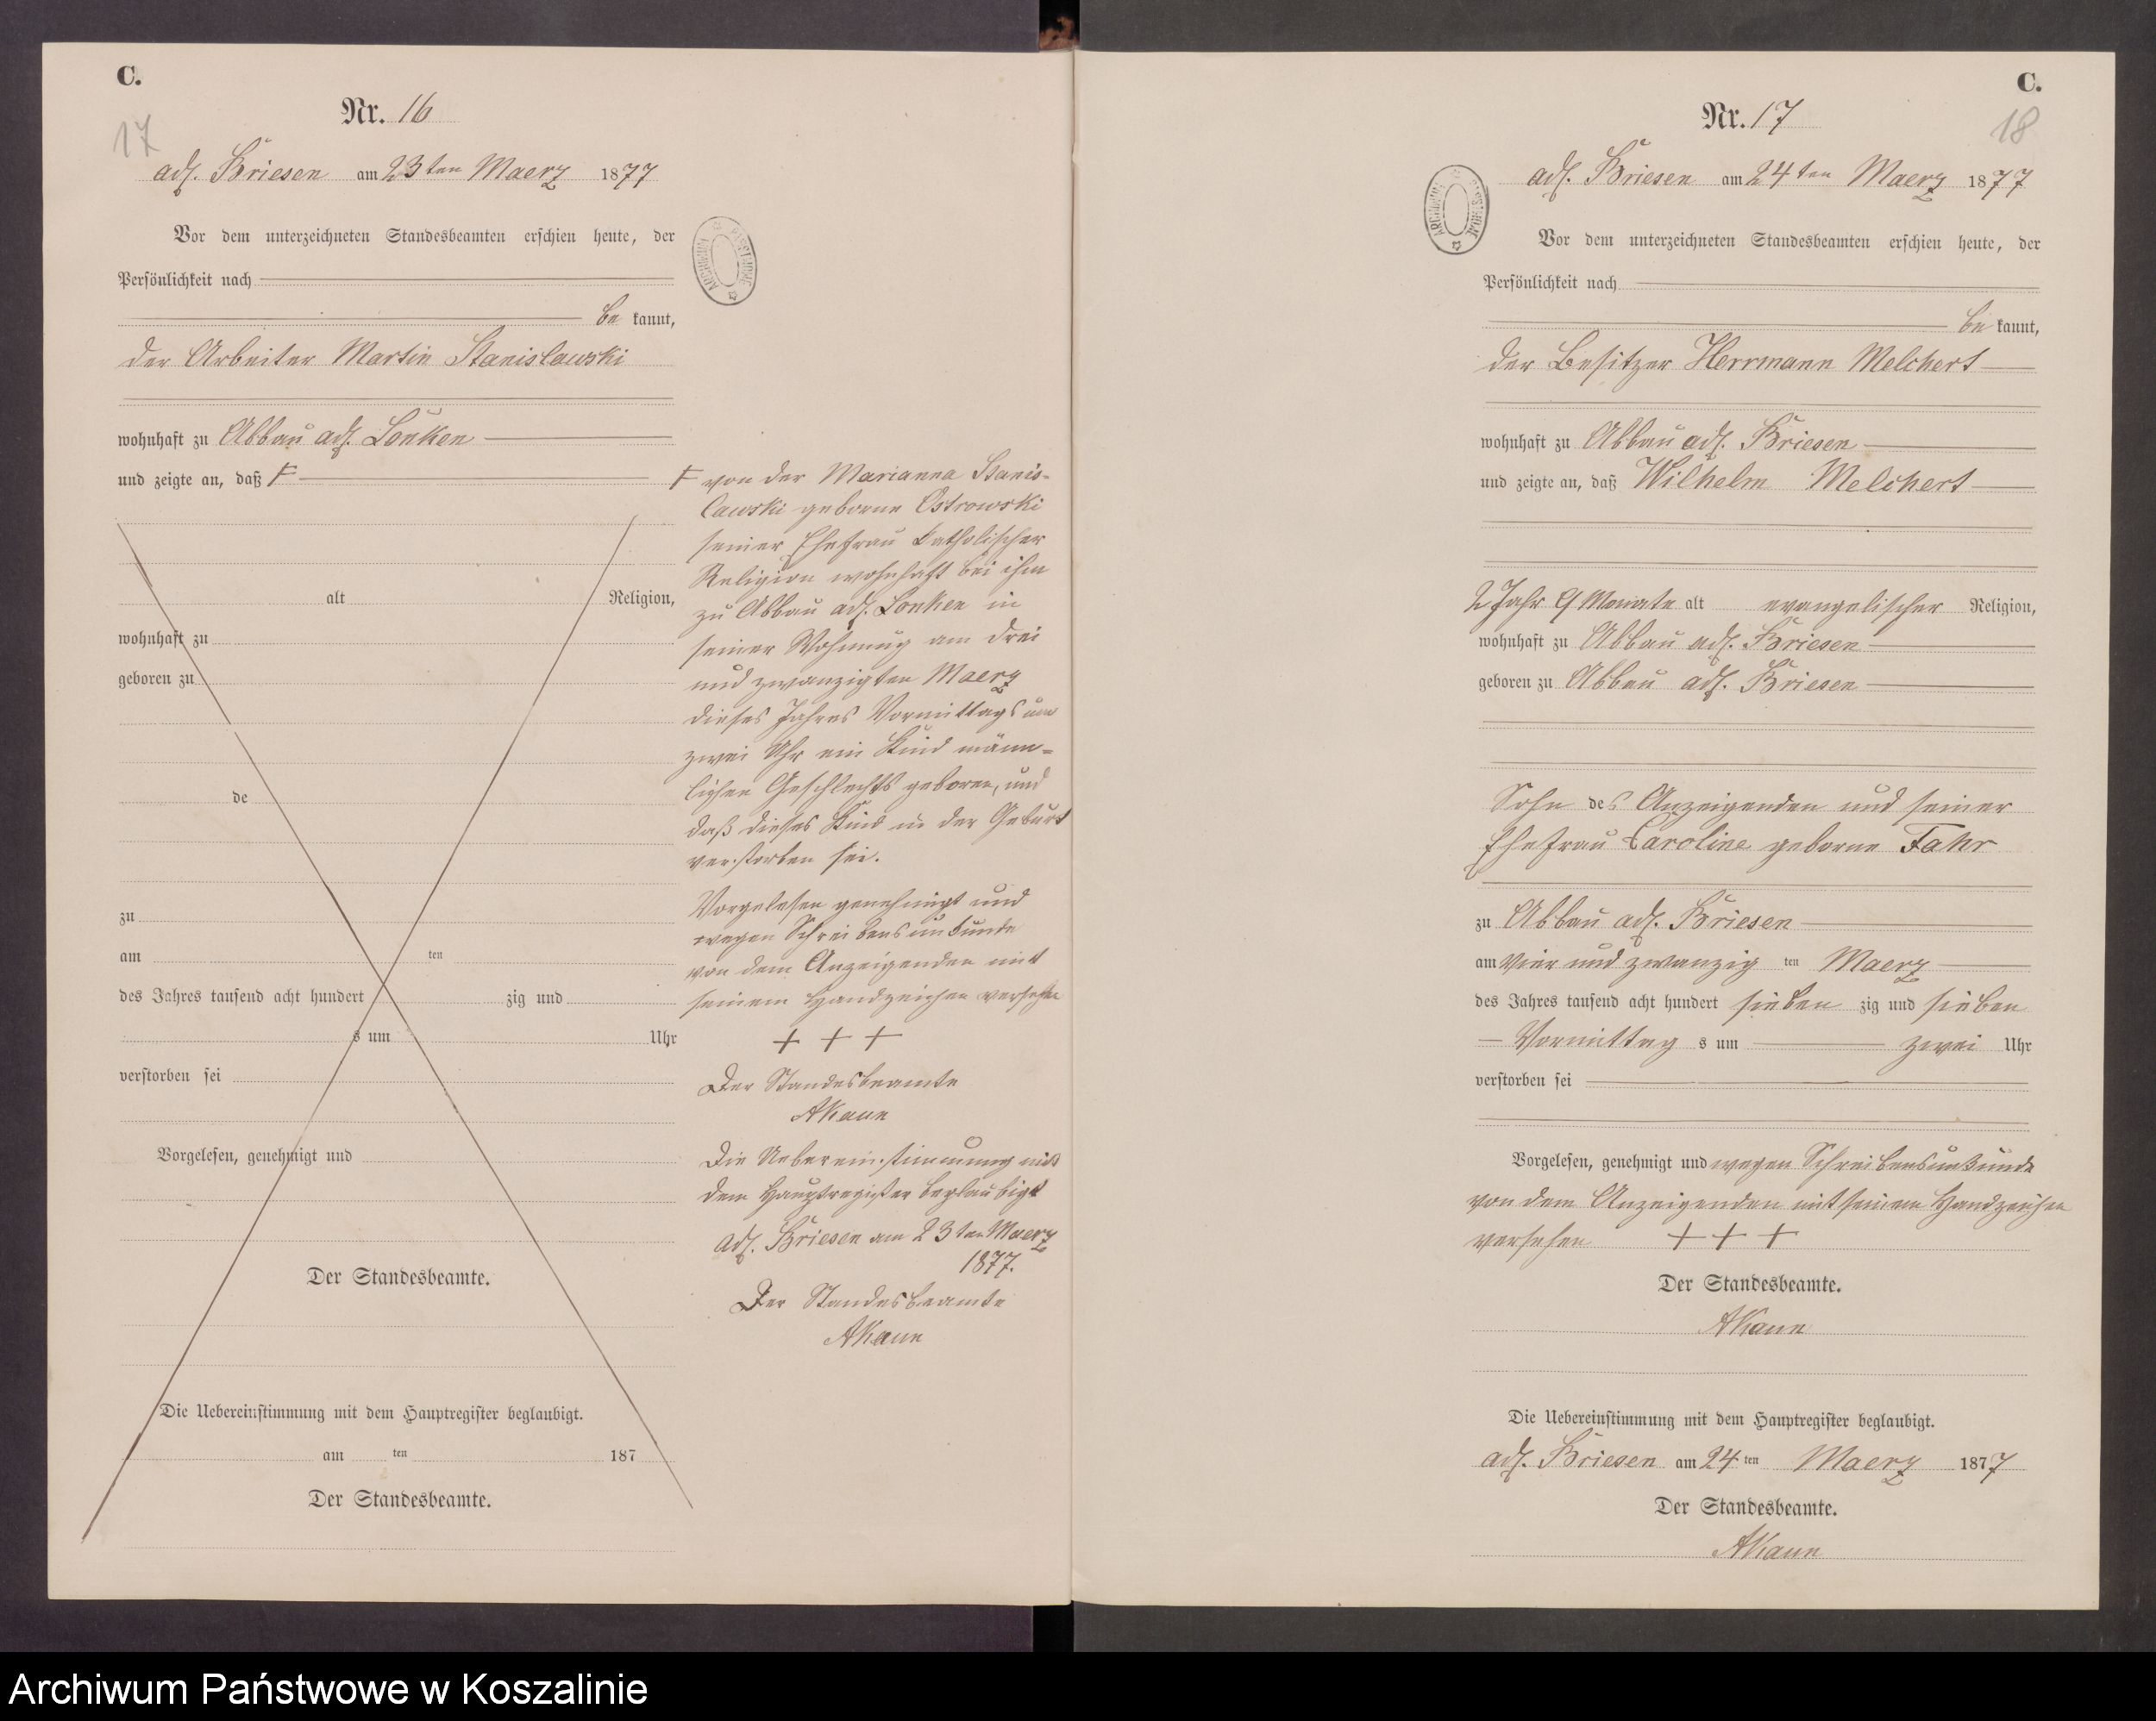 C.
Nr. 16
17
adl. Briesen am 23ten Maerz 1877
Vor dem unterzeichneten Standesbeamten erschien heute, der
Persönlichkeit nach
be kannt,
der Arbeiter Martin Stanislawski
wohnhaft zu Abbau adl. Lonken
und zeigte an, daß F
alt Religion,
wohnhaft zu
geboren zu
de
zu
am ten
des Jahres tausend acht hundert zig und
s um Uhr
verstorben sei
Vorgelesen, genehmigt und
Der Standesbeamte.
Die Uebereinstimmung mit dem Hauptregister beglaubigt.
am ten 187
Der Standesbeamte.
ARCHIWUM PAŃSTWOWE
F von der Marianna Stanis-
lawski geborne Ostrowski
seiner Ehefrau katholischer
Religion wohnhaft bei ihm
zu Abbau adl. Lonken in
seiner Wohnung am drei
und zwanzigten Maerz
dieses Jahres Vormittags um
zwei Uhr ein Kind männ-
lichen Geschlechts geboren, und
daß dieses Kind in der Geburt
verstorben sei.
Vorgelesen genehmigt und
wegen Schreibensunkunde
von dem Anzeigenden mit
seinem Handzeichen versehen
+ + +
Der Standesbeamte
AKaun
Die Uebereinstimmung mit
dem Hauptregister beglaubigt
adl. Briesen am 23ten Maerz
1877.
Der Standesbeamte
AKaun
C.
Nr. 17
18
adl. Briesen am 24ten Maerz 1877
ARCHIWUM PAŃSTWOWE
Vor dem unterzeichneten Standesbeamten erschien heute, der
Persönlichkeit nach
be kannt,
der Besitzer Herrmann Melchert
wohnhaft zu Abbau adl. Briesen
und zeigte an, daß Wilhelm Melchert
2 Jahr 9 Monate alt evangelischer Religion,
wohnhaft zu Abbau adl. Briesen
geboren zu Abbau adl. Briesen
Sohn des Anzeigenden und seiner
Ehefrau Caroline geborne Fahr
zu Abbau adl. Briesen
am vier und zwanzig ten Maerz
des Jahres tausend acht hundert sieben zig und sieben
Vormittag s um zwei Uhr
verstorben sei
Vorgelesen, genehmigt und wegen Schreibensunkunde
von dem Anzeigenden mit seinem Handzeichen
versehen + + +
Der Standesbeamte.
AKaun
Die Uebereinstimmung mit dem Hauptregister beglaubigt.
adl. Briesen am 24 ten Maerz 1877
Der Standesbeamte.
AKaun
Archiwum Państwowe w Koszalinie